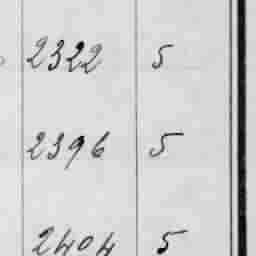 2322 5
2396 5
2404 5